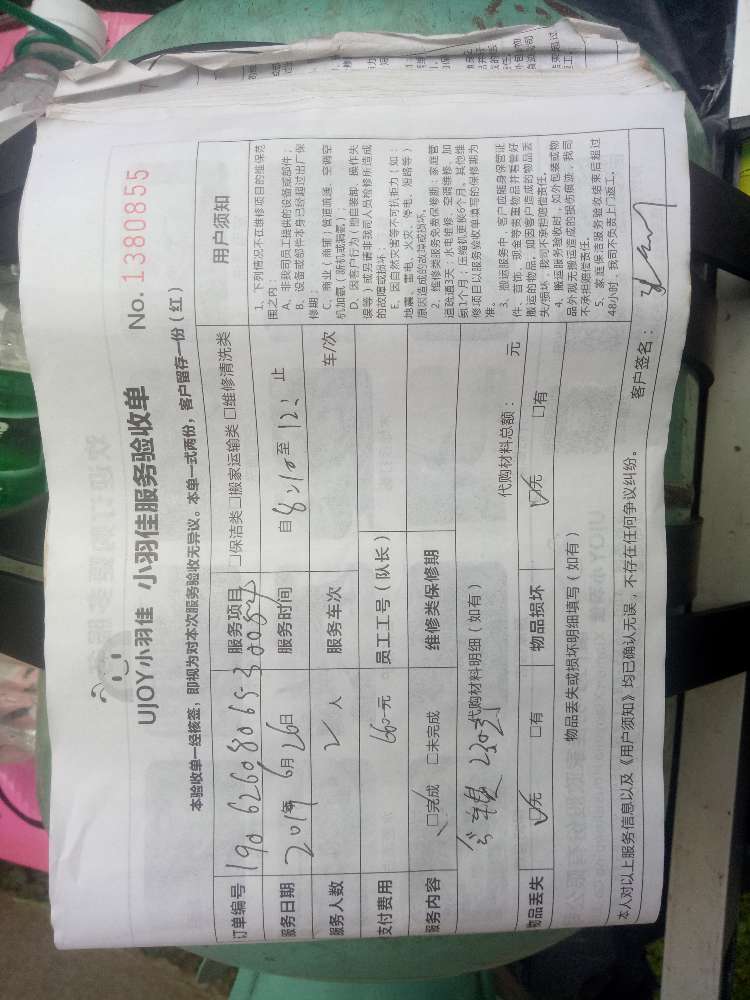 UJOY小羽佳 小羽佳服务验收单 No. 1380855
本验收单一经核签，即视为对本次服务验收无异议。本单一式两份，客户留存一份（红）
订单编号 190 6260806530084 服务项目 □保洁类 □搬家运输类 □维修清洗类
服务日期 2019年6月26日 服务时间 自 8:10 至 12: 止
服务人数 2 人 服务车次 车/次
支付费用 660元 员工工号（队长）
服务内容 □完成 □未完成 维修类保修期
代购材料明细（如有） 代购材料总额： 元
物品丢失 □无 □有 物品损坏 □无 □有
物品丢失或损坏明细填写（如有）
本人对以上服务信息以及《用户须知》均已确认无误，不存在任何争议纠纷。 客户签名：
用户须知
1、下列情况不在维修项目的维保范
围之内：
A、非我司员工提供的设备或部件；
B、设备或部件本身已经超过出厂保
修期；
C、商业（商铺）管道疏通、空调空
机加氨（新机或满氨）
D、因客户行为（擅自装卸、操作失
误等）或另请非我司人员检修所造成
的故障或损坏。
E、因自然灾害等不可抗拒力（如：
地震、雷电、火灾、停电、短路等）
原因造成的故障或损坏。
2、维修类服务免费保修期：家庭管
道疏通3天，水电维修、空调维修、加
氨1个月；压缩机更换6个月。其他维
修项目以服务验收单填写的保修期为
准。
3、搬运服务中，客户应随身保管证
件、首饰、现金等贵重物品并看管好
搬运的物品，如因客户造成的物品丢
失/损坏，我司不承担赔偿责任。
4、搬运服务验收时，如外包装或物
品外观无搬运造成的损伤痕迹，我司
不承担赔偿责任。
5、家庭保洁服务验收结束后超过
48小时，我司不负责上门返工。